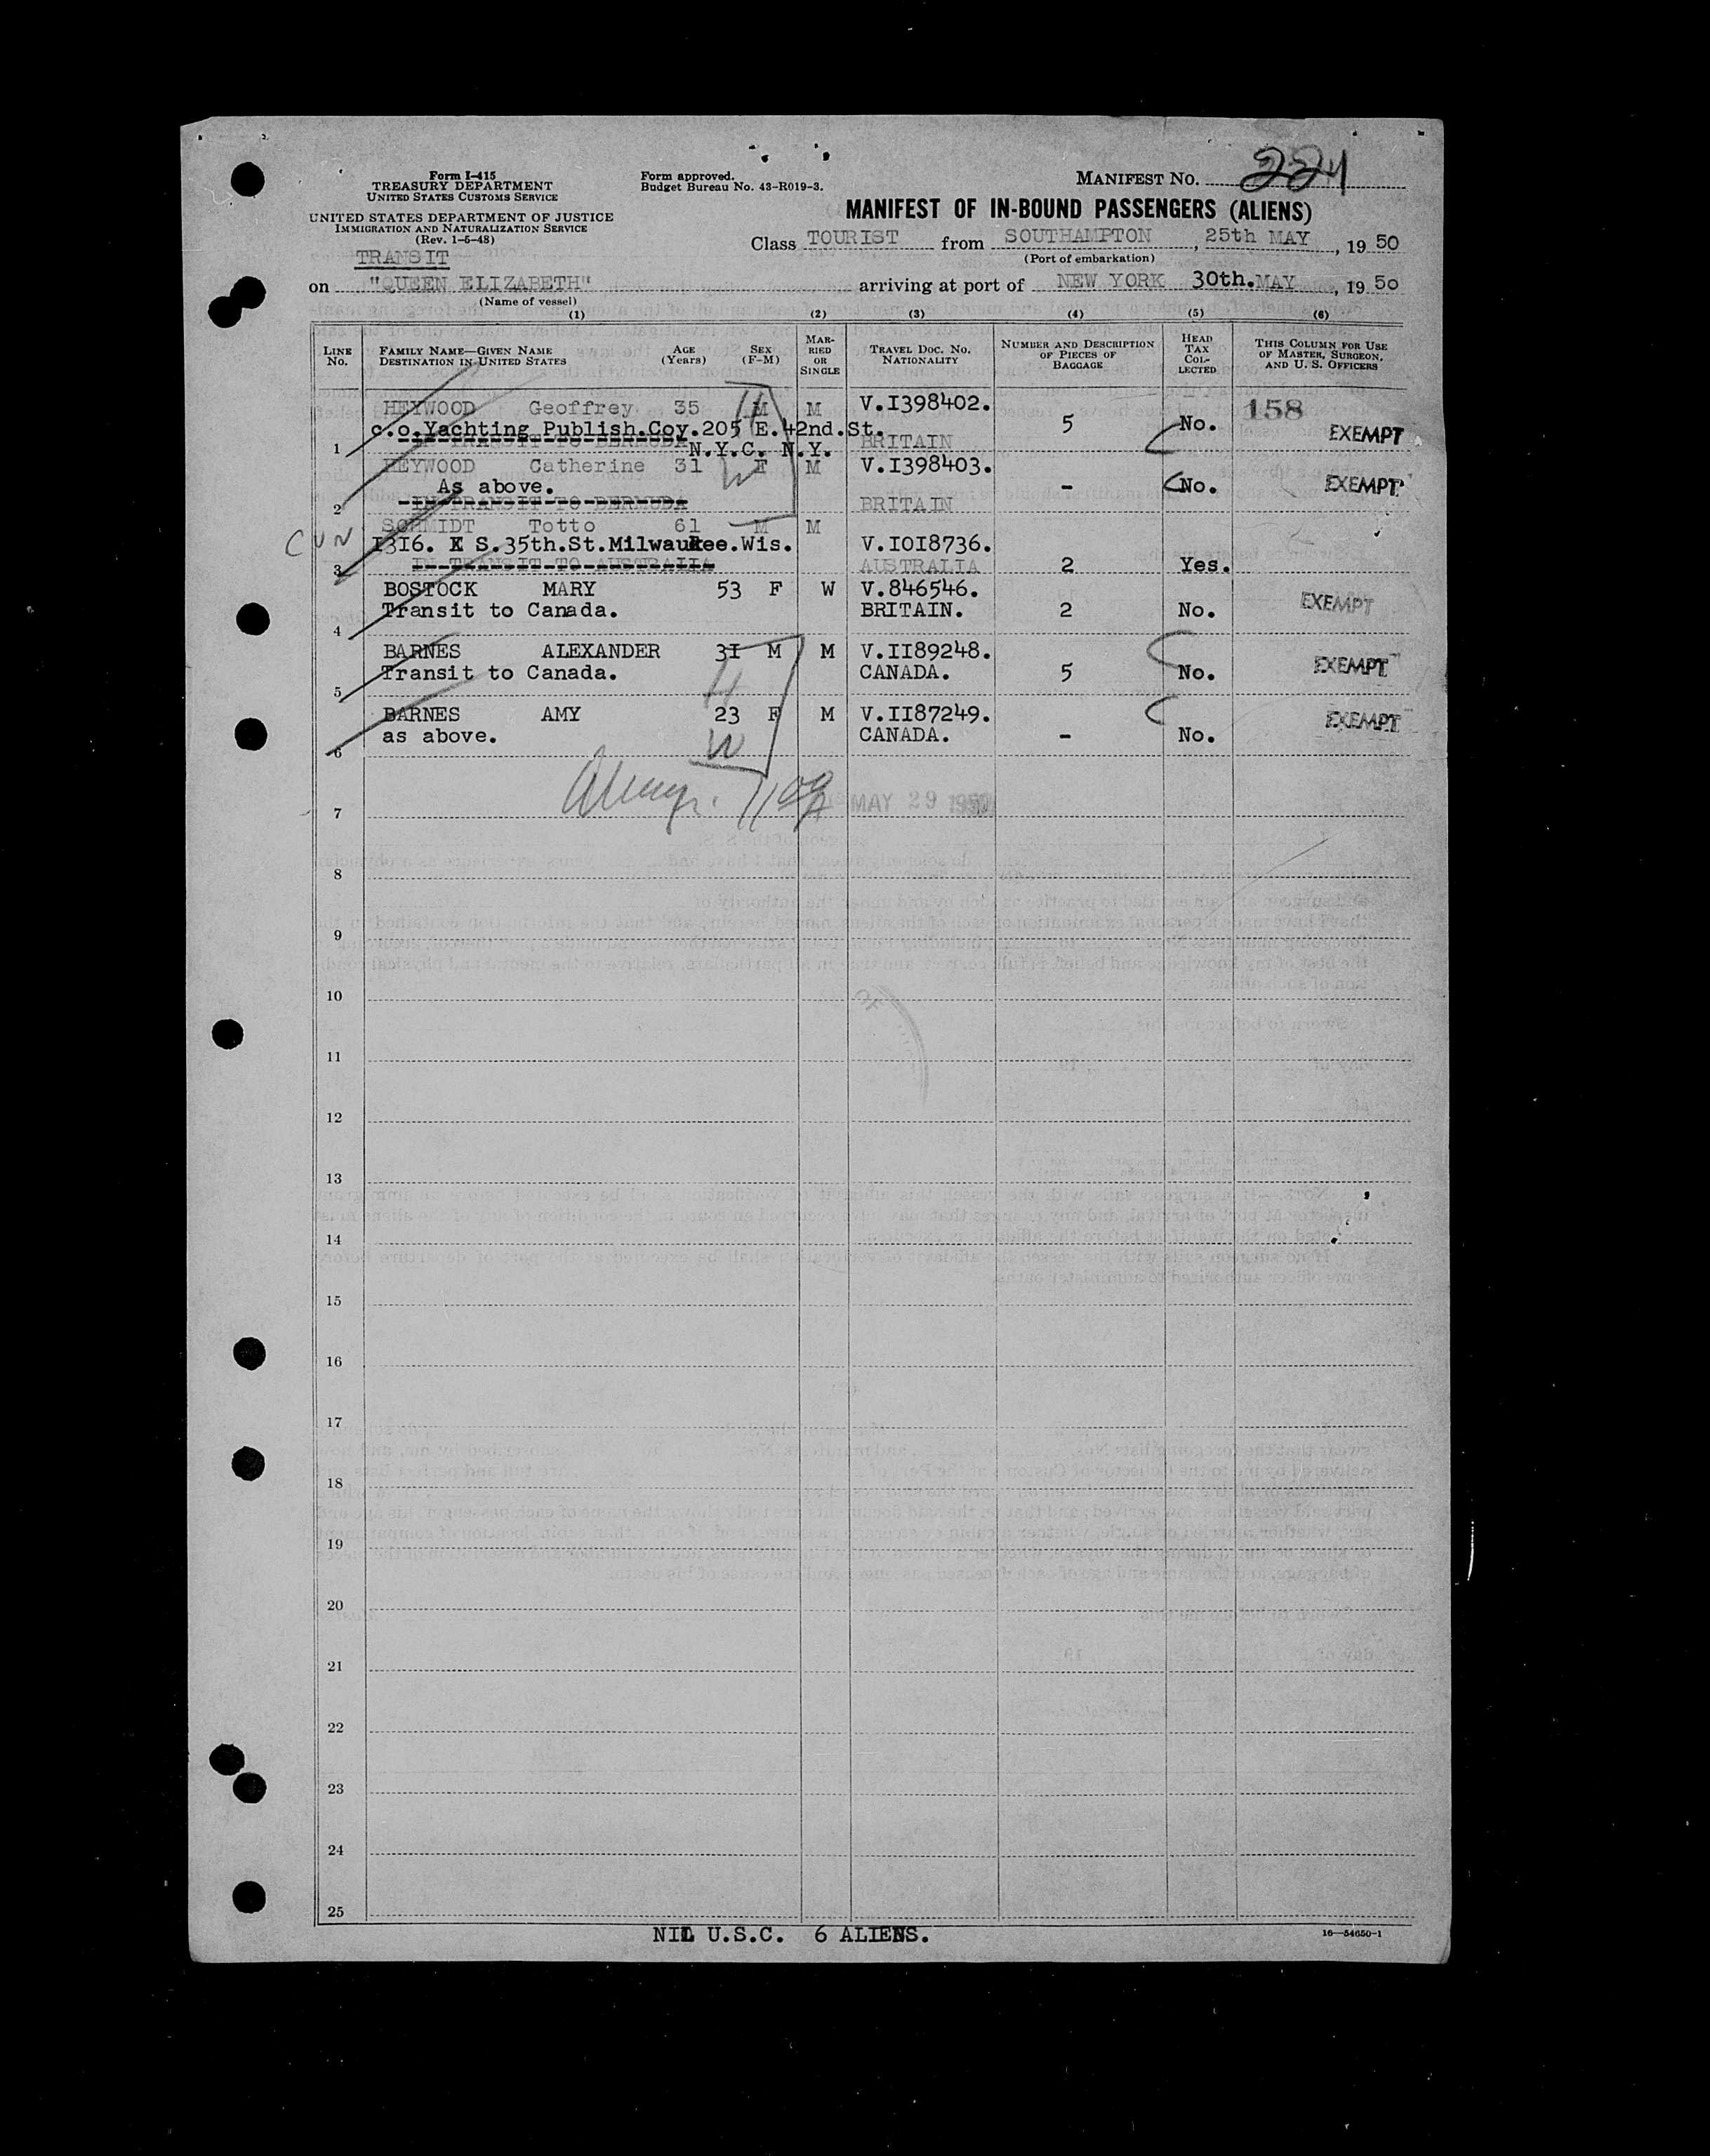 Form I-415
TREASURY DEPARTMENT
UNITED STATES CUSTOMS SERVICE
UNITED STATES DEPARTMENT OF JUSTICE
IMMIGRATION AND NATURALIZATION SERVICE
(Rev. 1-5-48)
Form approved.
Budget Bureau No. 43-R019-3.
MANIFEST NO. 224
MANIFEST OF IN-BOUND PASSENGERS (ALIENS)
Class TOURIST from SOUTHAMPTON, 25th MAY, 19 50
(Port of embarkation)
TRANSIT
on "QUEEN ELIZABETH" arriving at port of NEW YORK 30th. MAY, 19 50
(Name of vessel)
(1) (2) (3) (4) (5) (6)
LINE No. FAMILY NAME—GIVEN NAME DESTINATION IN UNITED STATES AGE (Years) SEX (F-M) MARRIED OR SINGLE TRAVEL DOC. NO. NATIONALITY NUMBER AND DESCRIPTION OF PIECES OF BAGGAGE HEAD TAX COLLECTED THIS COLUMN FOR USE OF MASTER, SURGEON, AND U. S. OFFICERS
HEYWOOD Geoffrey 35 M M V.I398402. 158
H
c.o.Yachting Publish.Coy.205 E.42nd.St. 5 No. EXEMPT
1 IN TRANSIT TO BERMUDA N.Y.C. N.Y. BRITAIN
HEYWOOD Catherine 31 F M V.I398403.
W
As above. - No. EXEMPT
2 IN TRANSIT TO BERMUDA BRITAIN
SCHMIDT Totto 61 M M
CUN I3I6. E S.35th.St.Milwaukee.Wis. V.IOI8736.
3 IN TRANSIT TO AUSTRALIA AUSTRALIA 2 Yes.
BOSTOCK MARY 53 F W V.846546. EXEMPT
Transit to Canada. BRITAIN. 2 No.
4
BARNES ALEXANDER 3I M M V.II89248. EXEMPT
Transit to Canada. CANADA. 5 No.
H
5
BARNES AMY 23 F M V.II87249. EXEMPT
as above. CANADA. - No.
W
6
MAY 29 1950
7
8
9
10
11
12
13
14
15
16
17
18
19
20
21
22
23
24
25
NIL U.S.C. 6 ALIENS.
16—54650-1